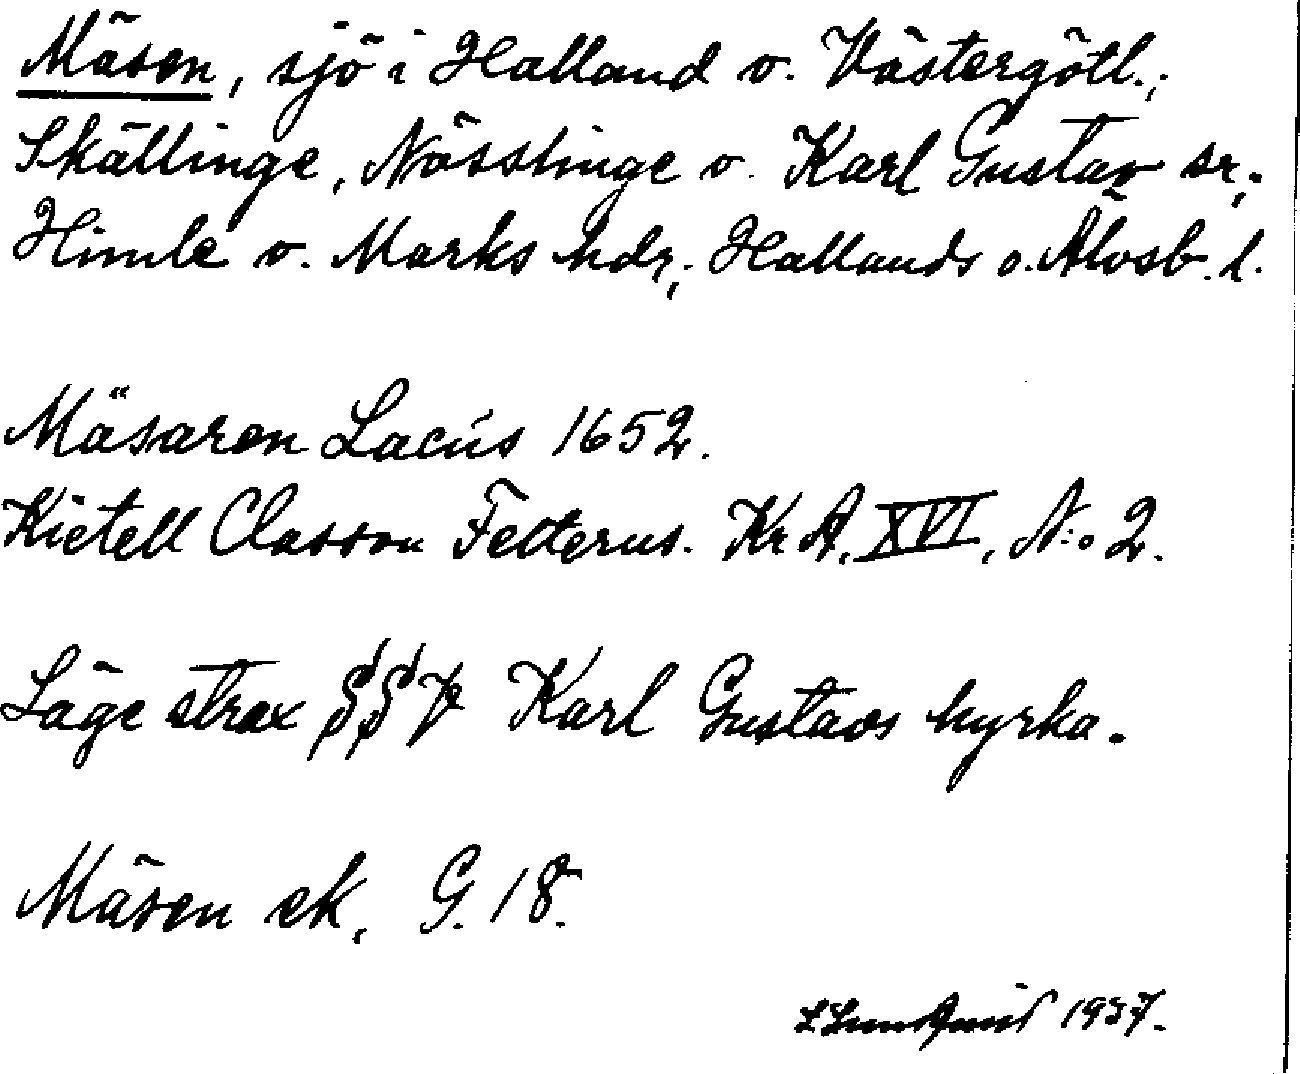 Mäsen, sjö i Halland o. Västergötl.;
Skällinge, Nösslinge o. Karl Gustav sr;
Himle o. Marks hdr; Hallands o. Älvsb. l.
Mäsaren Lacus 1652.
Kietell Classon Felterus. Kr A. XVI, N:o 2.
Läge strax Karl Gustavs kyrka.
Mäsen ek. G. 18.
L Lundqvist 1937.